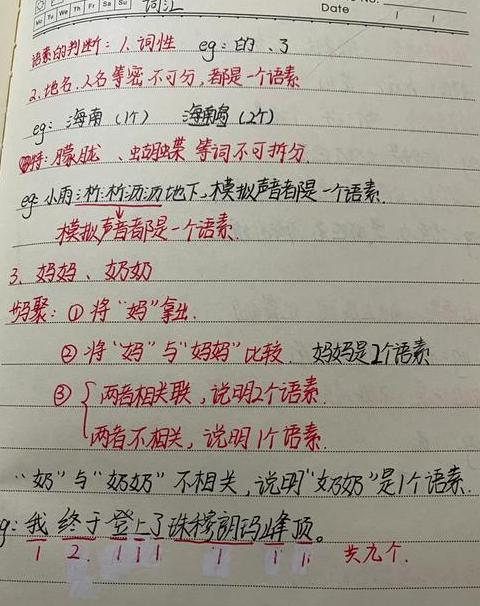 词汇
Mo Tu We Th Fr Sa Su
Date
语素的判断：1、词性 eg：的、了
2、地名、人名等密不可分，都是一个语素
eg：海南（1个） 海南岛（2个）
特：朦胧、蝴蝶 等词不可拆分
eg：小雨淅淅沥沥地下，模拟声音都是一个语素.
模拟声音都是一个语素.
3、妈妈、奶奶
步骤：①将“妈”拿出.
②将“妈”与“妈妈”比较. 妈妈是2个语素
③ 两者相关联，说明2个语素.
两者不相关，说明1个语素.
“奶”与“奶奶”不相关，说明“奶奶”是1个语素.
g：我终于登上了珠穆朗玛峰顶。
1 2. 1 1 1 1 1 1. 共九个.